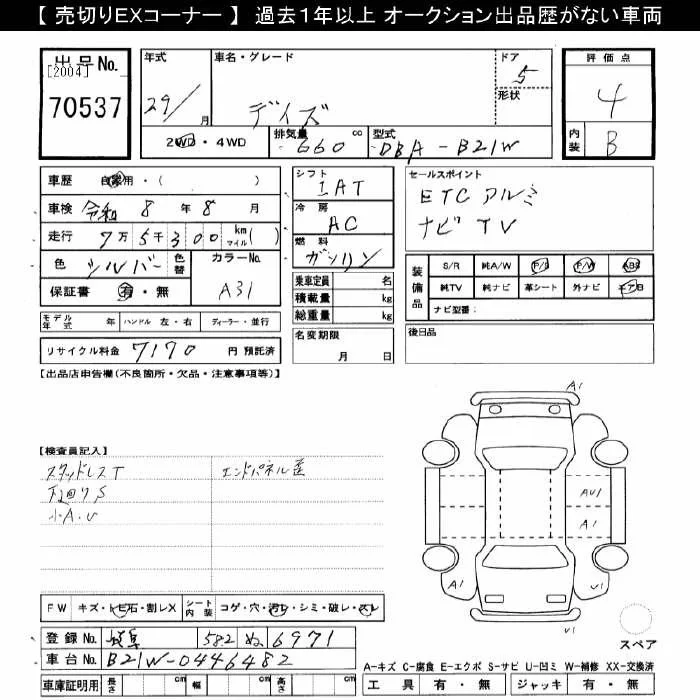 【 売切りEXコーナー 】 過去1年以上 オークション出品歴がない車両
出品No.
[2004]
70537
年式
29/ 月
車名・グレード
デイズ
ドア
5
形状
評価点
4
内装
B
2WD・4WD
排気量 660 cc
型式 DBA-B21W
車歴 自家用・( )
車検 令和 8 年 8 月
走行 7万5千300 km マイル( )
色 シルバー 色替
カラーNo.
A31
保証書 有・無
モデル年式 年 ハンドル 左・右 ディーラー・並行
リサイクル料金 7170 円 預託済
シフト
IAT
冷房
AC
燃料
ガソリン
乗車定員 名
積載量 kg
総重量 kg
名変期限
月 日
セールスポイント
ETC アルミ
ナビ TV
装備品
S/R 純A/W P/S P/W ABS
純TV 純ナビ 革シート 外ナビ エアB
ナビ型番:
後日品
【出品店申告欄(不良箇所・欠品・注意事項等)】
【検査員記入】
スタッドレスT
下回りS
小A.U
エンドパネル歪
FW キズ・トビ石・割レX
シート内装 コゲ・穴・汚レ・シミ・破レ・スレ
登録No. 岐阜 582 ぬ 6971
車台No. B21W-0446482
車庫証明用 長さ cm 幅 cm 高さ cm
A1
AU1
A1
A1
U1
U1
スペア
A-キズ C-腐食 E-エクボ S-サビ U-凹ミ W-補修 XX-交換済
工具 有・無 ジャッキ 有・無